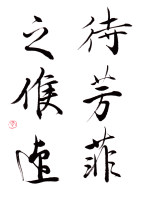 待芳菲
之候